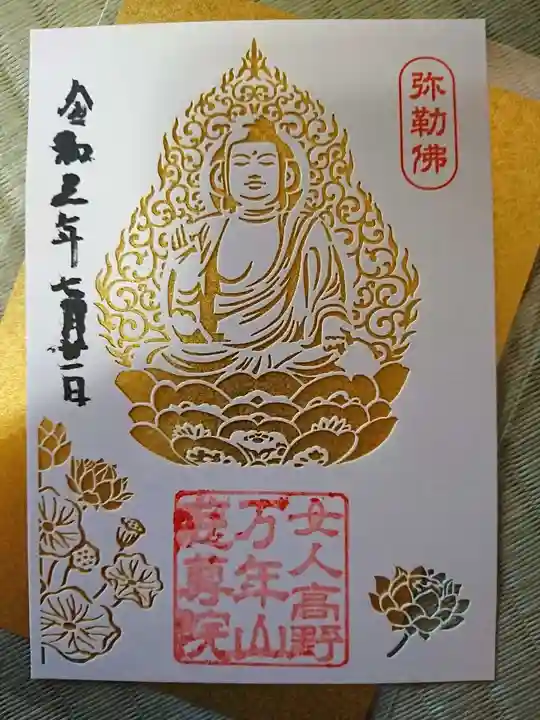 弥勒佛
女人高野
万年山
慈尊院
令和五年七月一日